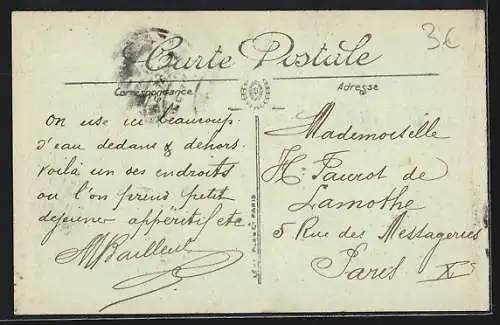 3€
Carte Postale
Correspondance
Adresse
On use ici beaucoup
d'eau dedans & dehors.
Voilà un des endroits
ou l'on prend petit
dejeuner appéritif etc
MBailleul
Mademoiselle
H. Paurot de
Lamothe
5 Rue des Messageries
Paris Xe
PARIS